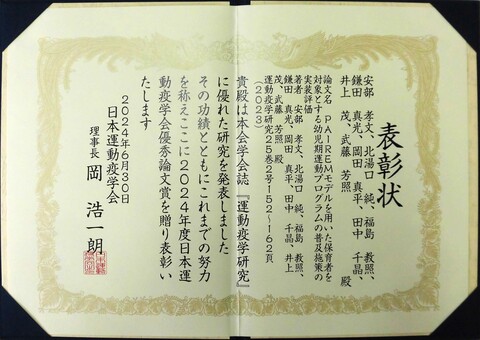 表彰状
安部 孝文、北湯口 純、福島 教照、
鎌田 真光、岡田 真平、田中 千晶、
井上 茂、武藤 芳照 殿
論文名 PAIREMモデルを用いた保育者を
対象とする幼児期運動プログラムの普及施策の
実装評価
著者 安部 孝文、北湯口 純、福島 教照、
鎌田 真光、岡田 真平、田中 千晶、井上
茂、武藤 芳照 殿
運動疫学研究25巻2号152~162頁
(2023)
貴殿は本会学会誌『運動疫学研究』
に優れた研究を発表しました
その功績とともにこれまでの努力
を称えここに2024年度日本運
動疫学会優秀論文賞を贈り表彰い
たします
2024年6月30日
日本運動疫学会
理事長 岡 浩一朗